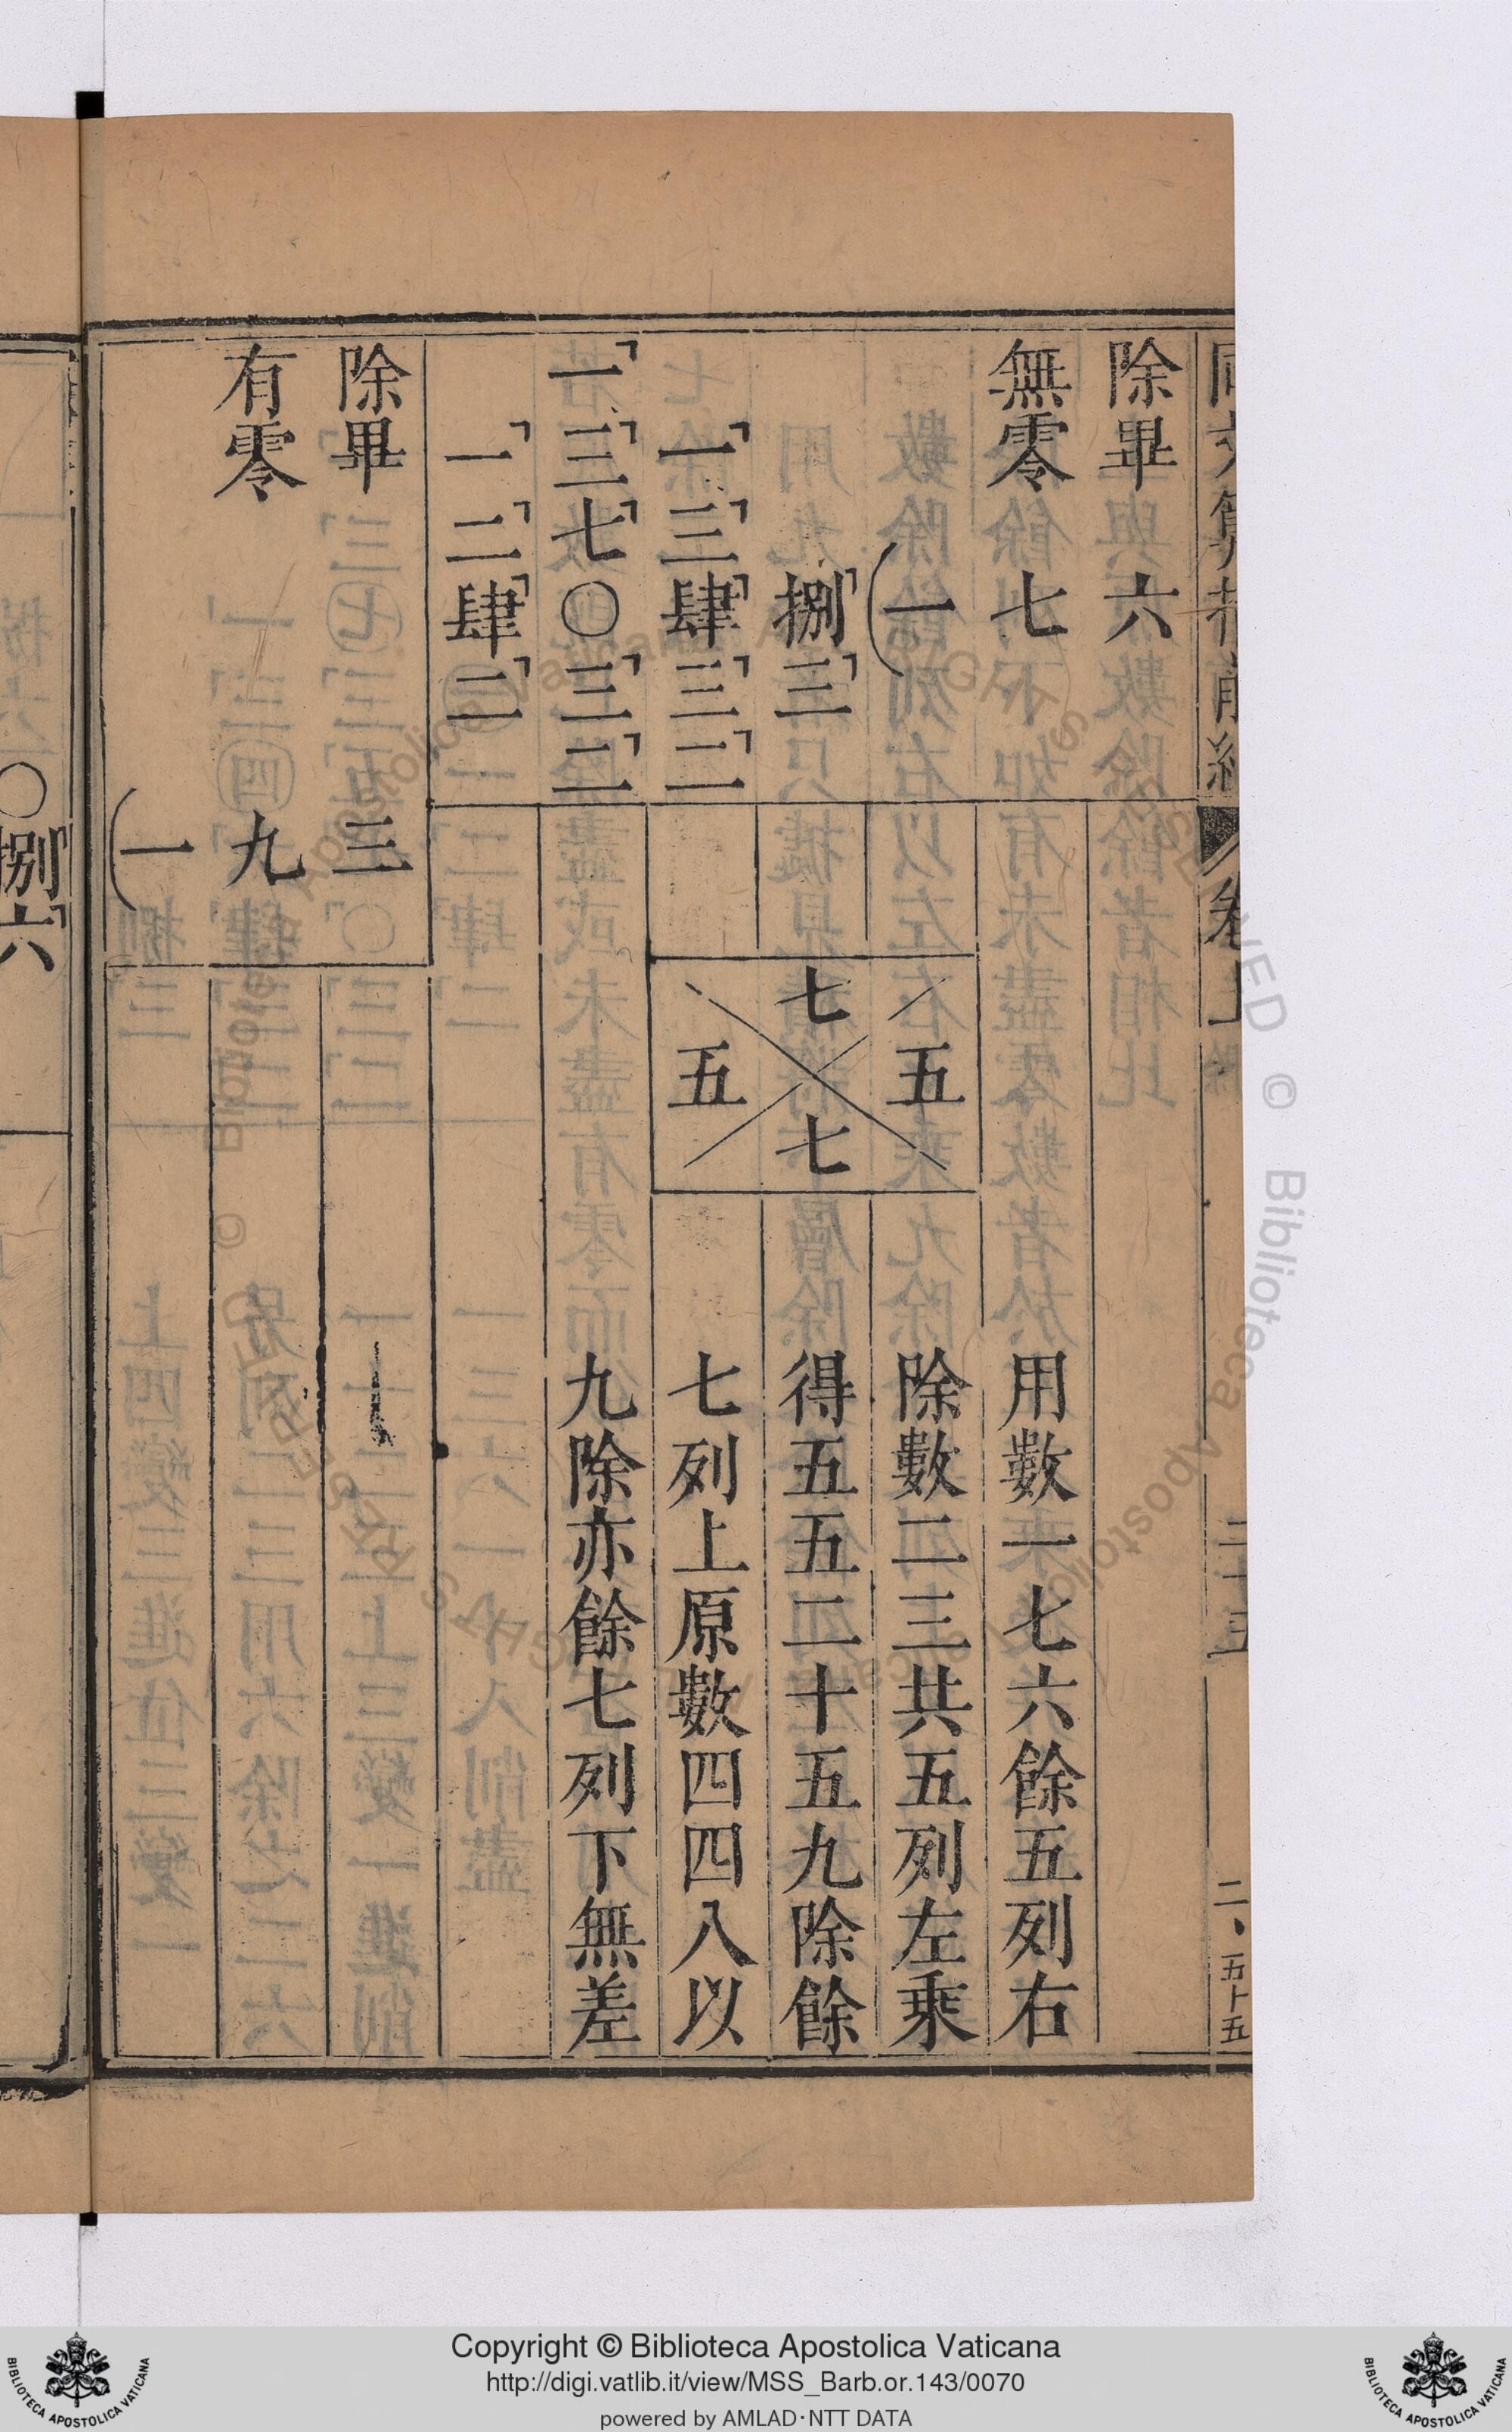 除畢　六
無零　七
一
捌三
一三肆三二
一三七〇三二
一二肆二
七
五　五
七
用數一七六餘五列右
除數二三共五列左乘
得五五二十五九除餘
七列上原數四四八以
九除亦餘七列下無差
除畢　三
有零　九
一
二、五十五
〇捌六
Copyright © Biblioteca Apostolica Vaticana
http://digi.vatlib.it/view/MSS_Barb.or.143/0070
powered by AMLAD·NTT DATA
BIBLIOTECA APOSTOLICA VATICANA
BIBLIOTECA APOSTOLICA VATICANA